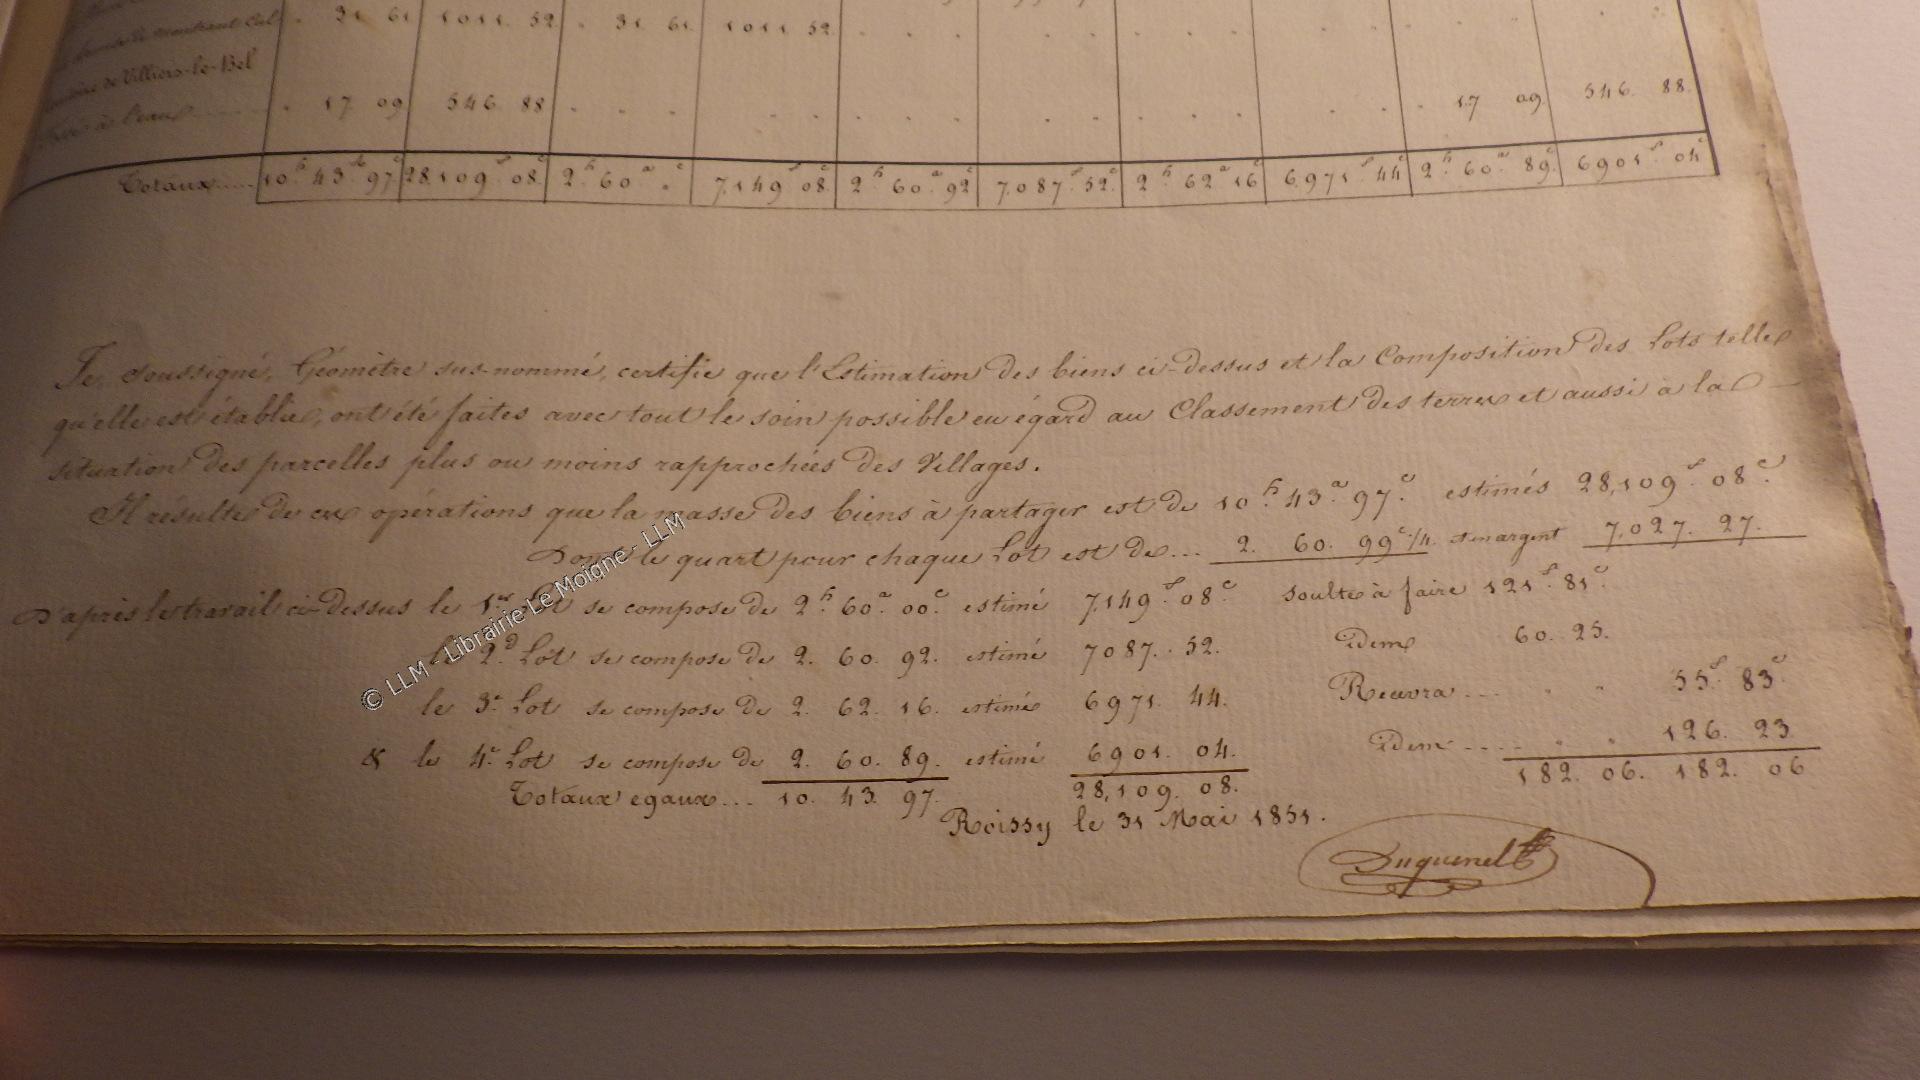 21 61 1011 52 31 61 1011 52
de Villiers-le-Bel
à l'eau 17 09 546 88 17 09 546. 88.
Totaux..... 10.h 43.a 97.c 28,109.f 08.c 2.h 60.a "c 7,149.f 08.c 2.h 60.a 92.c 7,087.f 52.c 2.h 62.a 16.c 6,971.f 44.c 2.h 60.a 89.c 6,901.f 04.c
Je, soussigné, Géomètre sus-nommé, certifie que l'Estimation des biens ci-dessus et la Composition des Lots telle
qu'elle est établie, ont été faites avec tout le soin possible eu égard au Classement des terres et aussi à la
situation des parcelles plus ou moins rapprochées des Villages.
Il résulte de ces opérations que la masse des biens à partager est de 10.h 43.a 97.c estimés 28,109.f 08.c
Dont le quart pour chaque Lot est de... 2. 60. 99c 1/4. en argent 7,027. 27.
D'après le travail ci-dessus le 1er Lot se compose de 2.h 60.a 00.c estimé 7,149.f 08.c soulte à faire 121.f 81.c
le 2.d Lot se compose de 2. 60. 92. estimé 7087. 52. Idem 60. 25.
le 3.e Lot se compose de 2. 62. 16. estimé 6971. 44. Recevra.... 55.f 83.c
& le 4.e Lot se compose de 2. 60. 89. estimé 6901. 04. Idem..... 126. 23
Totaux egaux... 10. 43. 97. 28,109. 08. 182. 06. 182. 06
Roissy le 31 Mai 1851.
Duquenel
© LLM - Librairie Le Moigne - LLM